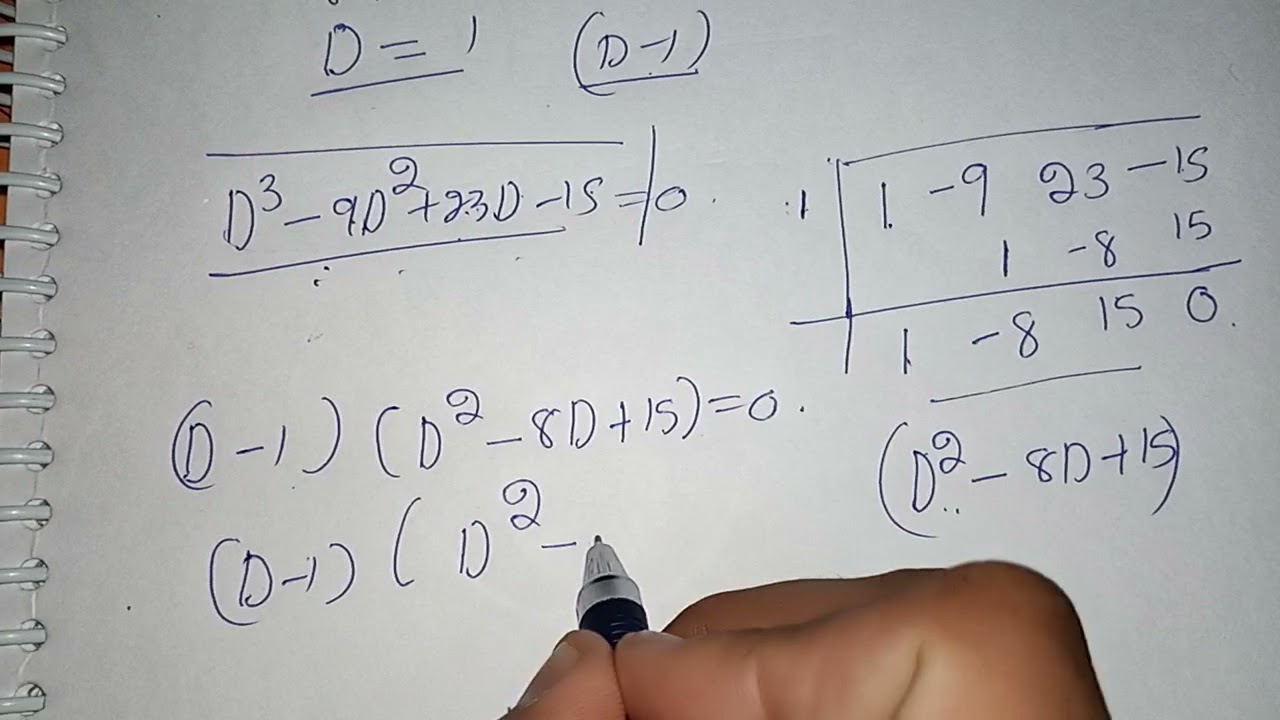 D = 1 (D-1)
D³ - 9D² + 23D - 15 = 0.
1 | 1 -9 23 -15
1 -8 15
1 -8 15 0.
(D-1) (D² - 8D + 15) = 0.
(D² - 8D + 15)
(D-1) ( D² -